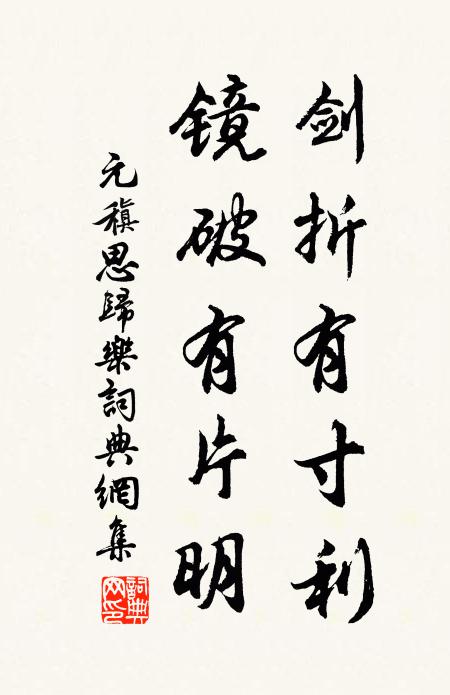 剑折有寸利
镜破有片明
元稹思歸樂詞典網集
詞典網印